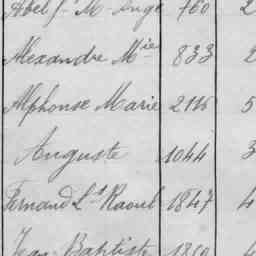 Abel f. M. Ange 760 2
Alexandre Mie 833 2
Alphonse Marie 2116 5
Auguste 1044 3
Fernand Lt Raoul 1847 4
Jean Baptiste 1850 4